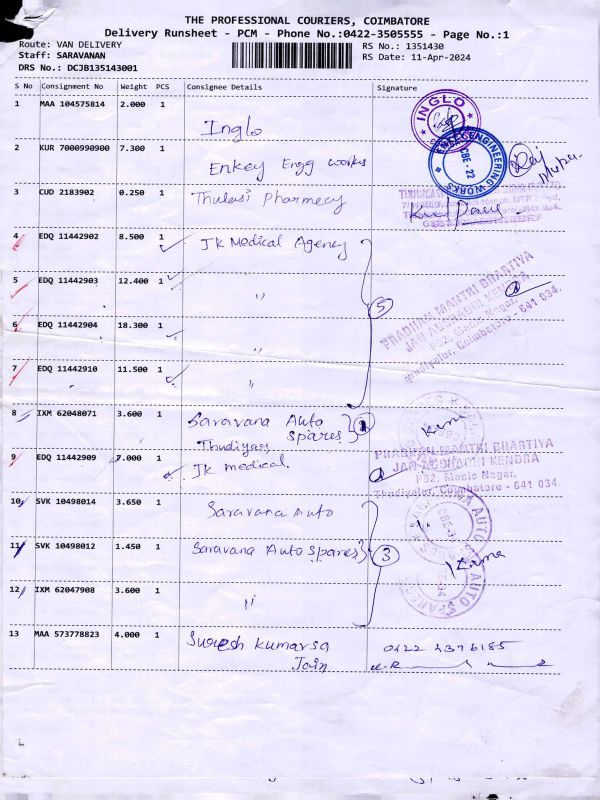 THE PROFESSIONAL COURIERS, COIMBATORE
Delivery Runsheet - PCM - Phone No.:0422-3505555 - Page No.:1
Route: VAN DELIVERY
RS No.: 1351430
Staff: SARAVANAN
RS Date: 11-Apr-2024
DRS No.: DCJB135143001
S No Consignment No Weight PCS Consignee Details Signature
1 MAA 104575814 2.000 1 Inglo
INGLO
2 KUR 7000990900 7.300 1 Enkey Engg works
ENGINEERING WORKS
CBE-22
3 CUD 2183902 0.250 1 Thulasi Pharmacy
4 EDQ 11442902 8.500 1 JK Medical Agency
5 EDQ 11442903 12.400 1 "
6 EDQ 11442904 18.300 1 "
5
PRADHAN MANTRI BHARTIYA
JAN AUSHADHI KENDRA
P02, Manic Nagar,
Thudiyalur, Coimbatore - 641 034.
7 EDQ 11442910 11.500 1 "
8 IXM 62048071 3.600 1 Saravana Auto
Spares
Thudiyar
Kuma
9 EDQ 11442909 7.000 1 JK medical
PRADHAN MANTRI BHARTIYA
JAN AUSHADHI KENDRA
P02, Manic Nagar,
Thudiyalur, Coimbatore - 641 034.
10 SVK 10498014 3.650 1 Saravana Auto
11 SVK 10498012 1.450 1 Saravana Auto Spares
3
AUTO SPARES
Kuma
12 IXM 62047908 3.600 1 "
13 MAA 573778823 4.000 1 Suresh Kumarsa
Jain
0422 4376185